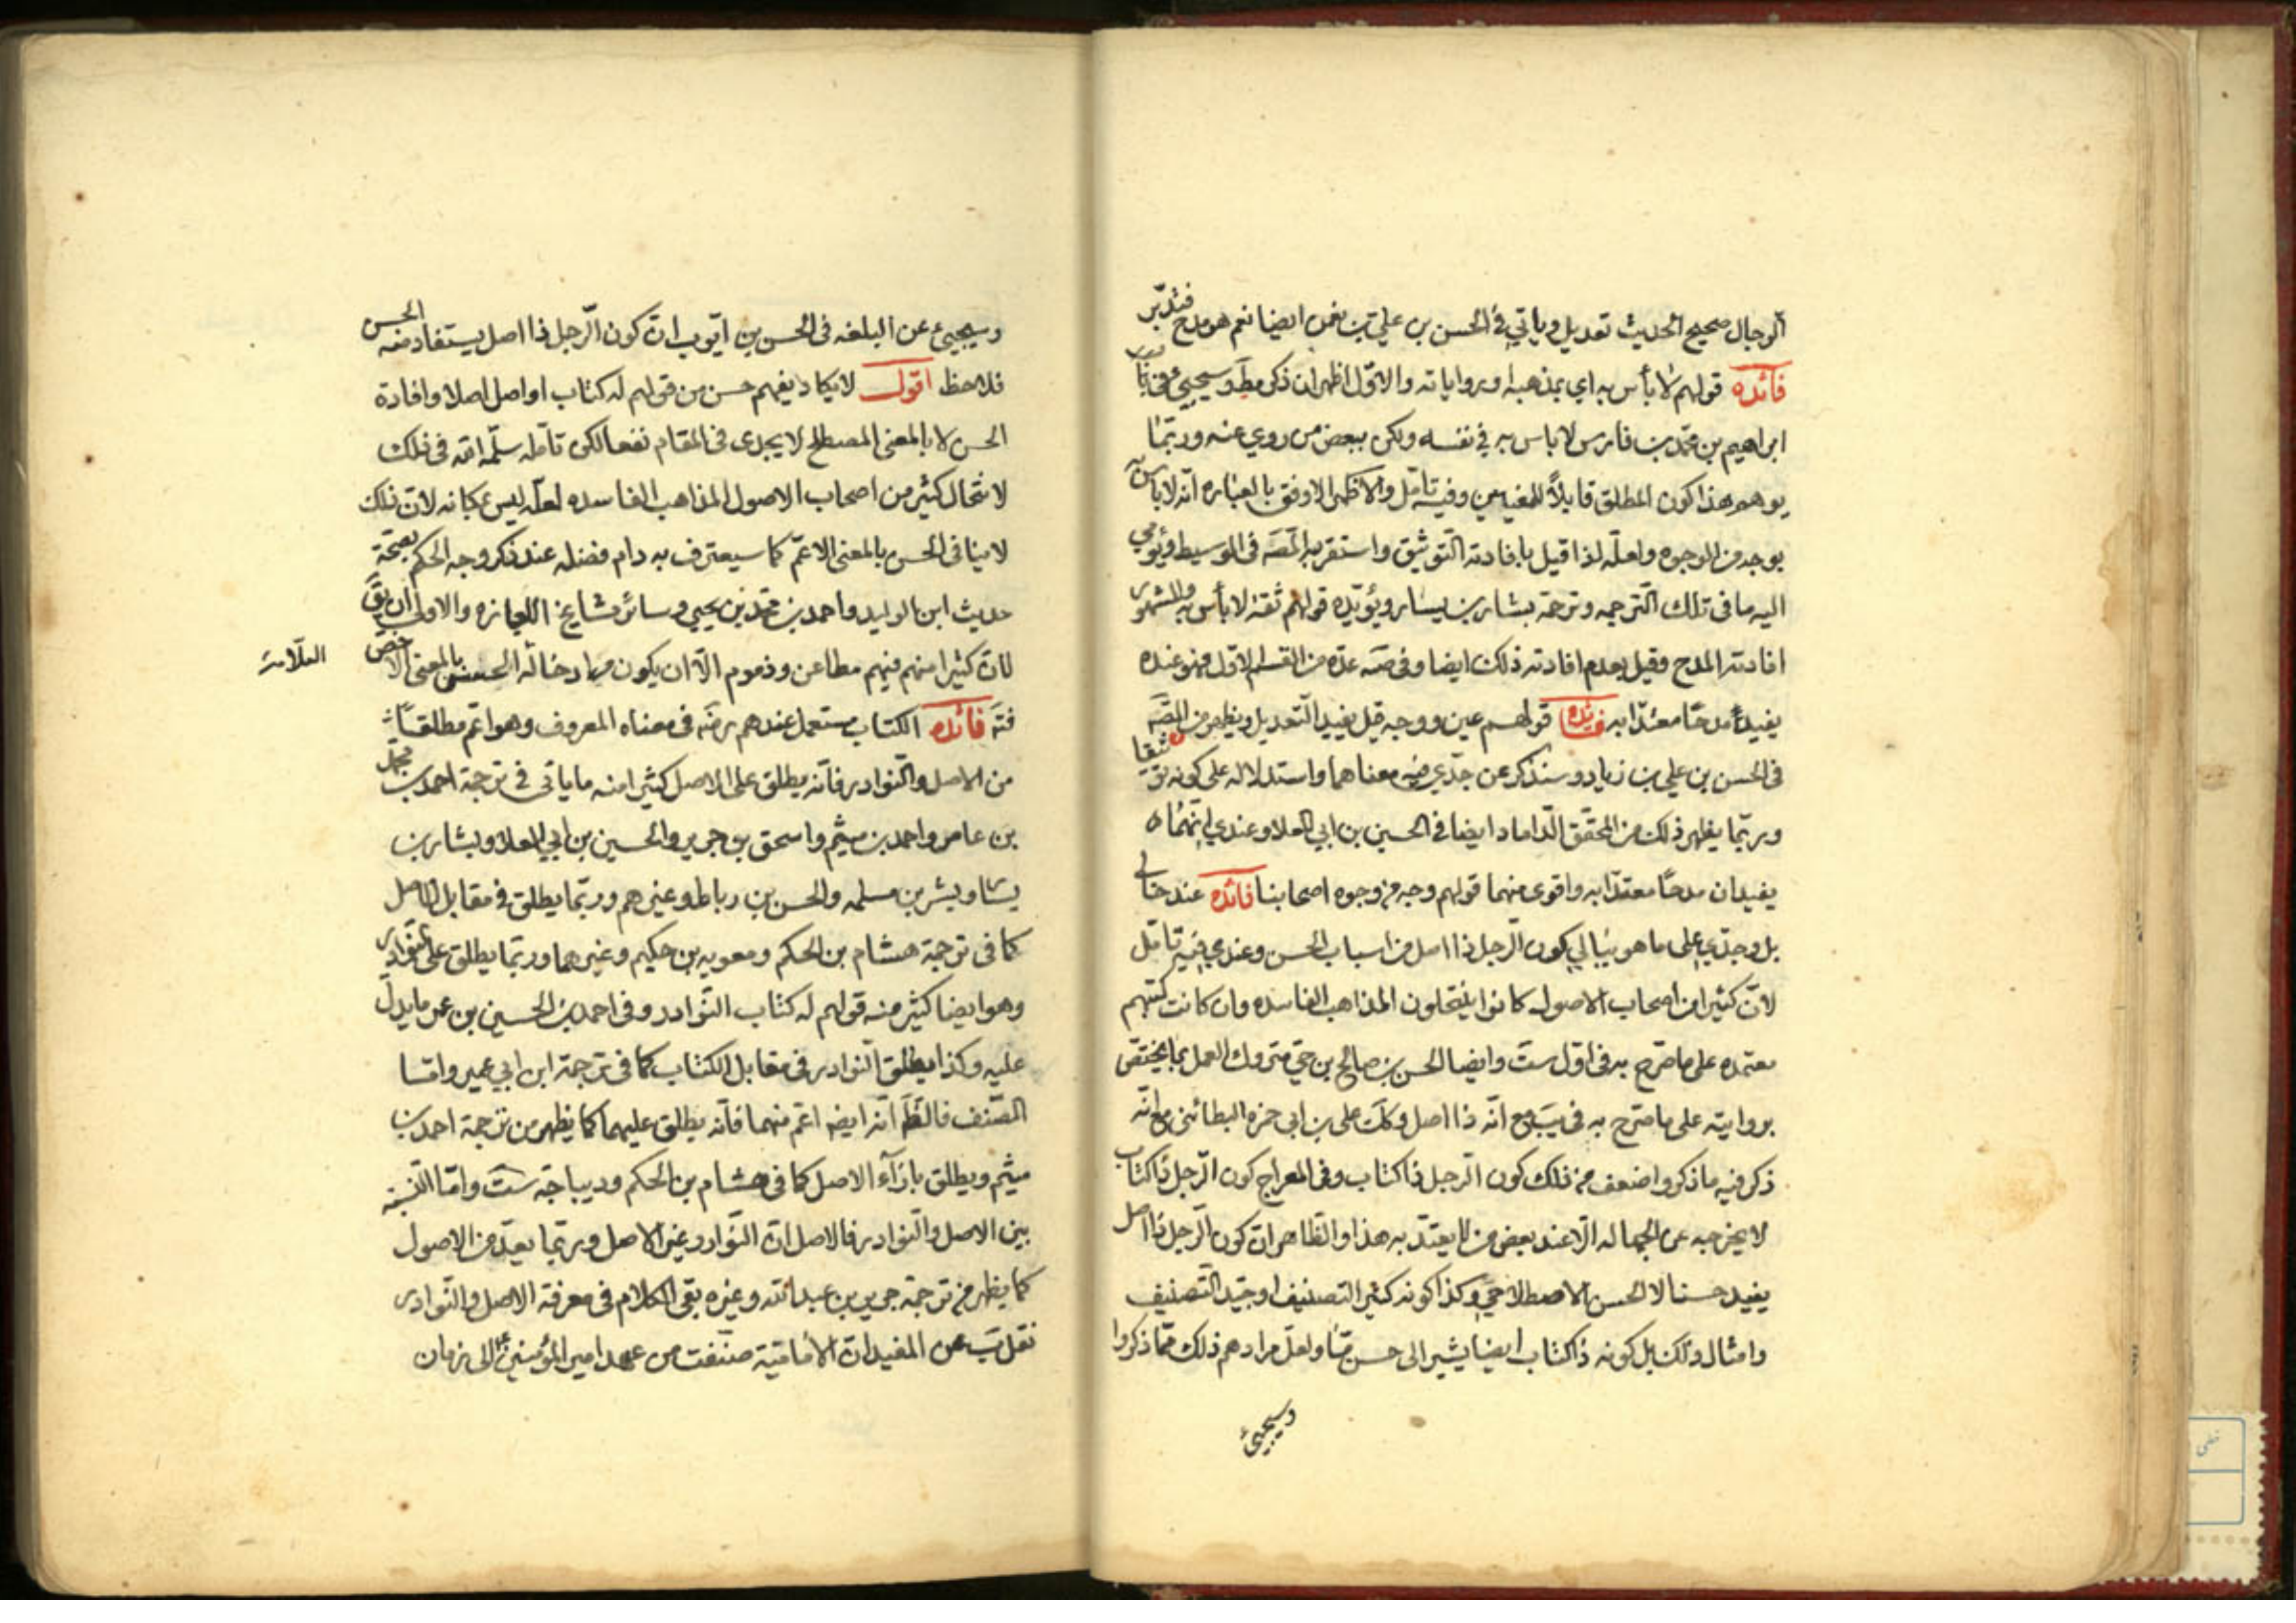 الرجال صحيح الحديث تعديل ويأتي في الحسن بن علي بن نعمن ايضا نعم هو مدح فتدبّر
فائده قولهم لا بأس به اي بمذهبه او برواياته والاوّل اظهر ان ذكر مط وسيجيئ في
ابراهيم بن محمّد بن فارس لا باس به في نفسه ولكن ببعض من روي عنه وربّما
يوهم هذا كون المطلق قابلاً للمعنيين وفيه تامّل والاظهر الاوفق بالعباره انّه لا باس به
بوجه من الوجوه ولعلّه لذا قيل بافادته التّوثيق واستقربه المص في الوسيط ويؤمي
اليه ما في تلك التّرجمه وترجمة بشار بن يسار ويؤيّده قولهم ثقة لا بأس به والمشهور
افادته المدح وقيل بعدم افادته ذلك ايضا وفي صه عدّه من القسم الاوّل فهو عنده
يفيد مدحًا معتدّا به فائده قولهم عين ووجه قيل يفيد التّعديل ويظهر من المص
في الحسن بن علي بن زياد وسنذكر عن جدّي فيه معناهما واستدلاله على كونه توثيقا
وربّما يظهر ذلك من المحقّق الدّاماد ايضا في الحسين بن ابي العلا وعندي انّهما
يفيدان مدحًا معتدّا به واقوى منهما قولهم وجه من وجوه اصحابنا فائده عند خالي
بل وجدّي على ما هو ببالي كون الرّجل ذا اصل من اسباب الحسن وعندي فيه تامّل
لانّ كثيرا من اصحاب الاصول كانوا ينتحلون المذاهب الفاسده وان كانت كتبهم
معتمده على ما صرّح به في اوّل ست وايضا الحسن بن صالح بن حيّ متروك العمل بما يختصّ
بروايته على ما صرّح به في يب مع انّه ذا اصل وكذا علي بن ابي حمزه البطائني مع انّه
ذكر فيه ما ذكر واضعف من ذلك كون الرّجل ذا كتاب وفي المعراج كون الرّجل ذا كتاب
لا يخرجه عن الجهاله الّا عند بعض من لا يعتدّ به هذا والظاهر انّ كون الرّجل ذا اصل
يفيد حسنا لا الحسن الاصطلاحي وكذا كونه كثير التصنيف او جيّد التّصنيف
وامثال ذلك بل كونه ذا كتاب ايضا يشير الى حسن ما ولعلّ مرادهم ذلك ممّا ذكروا
وسيجيئ
وسيجيئ عن البلغه في الحسن بن ايّوب انّ كون الرّجل ذا اصل يستفاد منه الحسن
فلاحظ اقول لا يكاد يفهم حسن من قولهم له كتاب او اصل اصلا وافادة
الحسن لا بالمعنى المصطلح لا يجدى في المقام نفعا لكن تامّله سلّمه الله في ذلك
لانتحال كثير من اصحاب الاصول المذاهب الفاسده لعلّه ليس بمكانه لانّ ذلك
لا ينافي الحسن بالمعنى الاعمّ كما سيعترف به دام فضله عند ذكر وجه الحكم بصحّة
حديث ابن الوليد واحمد بن محمّد بن يحيى وسائر مشايخ الاجازه والاولى ان يق
لانّ كثيرا منهم فيهم مطاعن وذموم الّا ان يكون مراد خاله الحسن بالمعنى الاخصّ
العلّامه
فتم فائده الكتاب مستعمل عندهم رضه في معناه المعروف وهو اعم مطلقا
من الاصل والنّوادر فانّه يطلق على الاصل كثيرا منه ما ياتي في ترجمة احمد بن محمّد
بن عامر واحمد بن ميثم واسحق بن جرير والحسين بن ابي العلا وبشار بن
يسار وبشر بن مسلمه والحسن بن رباط وغيرهم وربّما يطلق في مقابل الاصل
كما في ترجمة هشام بن الحكم ومعويه بن حكيم وغيرهما وربّما يطلق على النّوادر
وهو ايضا كثير منه قولهم له كتاب النّوادر وفي احمد بن الحسين بن عمر ما يدلّ
عليه وكذا يطلق النّوادر في مقابل الكتاب كما في ترجمة ابن ابي عمير وامّا
المصنّف فالظ انّه ايضا اعمّ منهما فانّه يطلق عليهما كما يظهر من ترجمة احمد بن
ميثم ويطلق بازآء الاصل كما في هشام بن الحكم وديباجة ست وامّا النّسبة
بين الاصل والنّوادر فالاصل انّ النّوادر غير الاصل وربّما يعدّ من الاصول
كما يظهر من ترجمة حريز بن عبد الله وغيره بقي الكلام في معرفة الاصل والنّوادر
نقل ب عن المفيد انّ الاماميّة صنّفت من عهد امير المؤمنين ع الى زمان